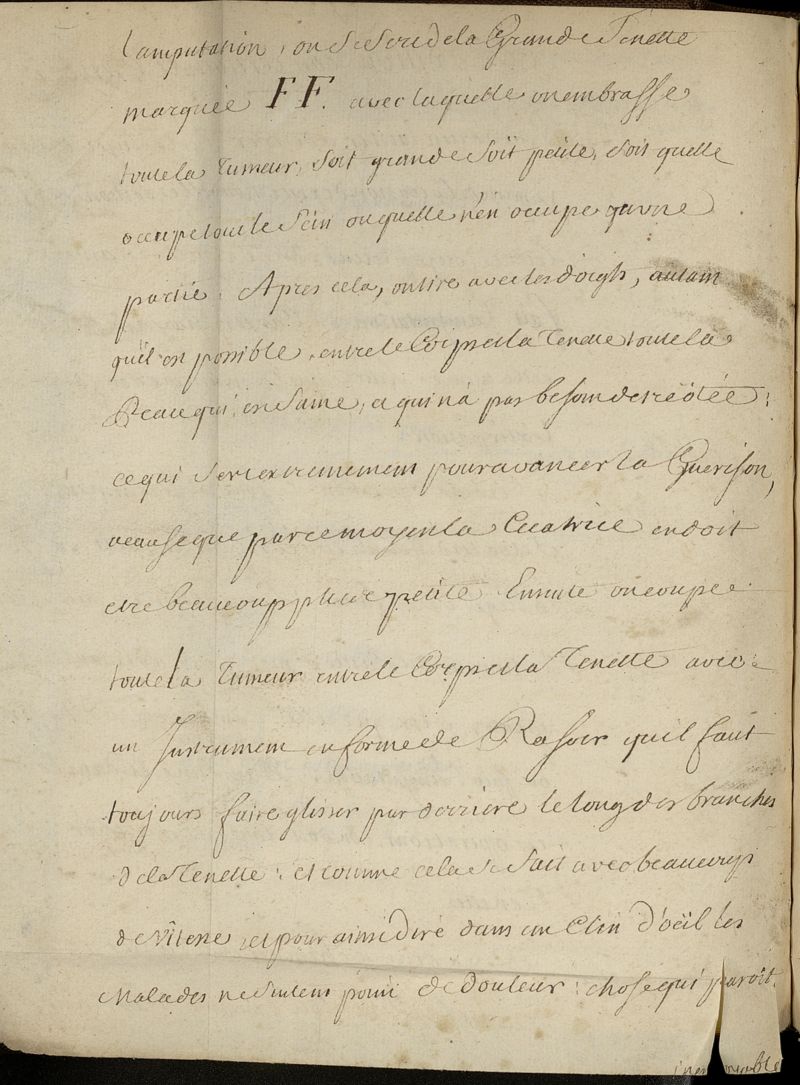 l'amputation, on se sert de la Grande Tenette
marquée FF. avec laquelle on embrasse
toute la Tumeur, soit grande soit petite, soit quelle
occupe tout le Sein ou quelle n'en occupe qu'une
partie. Apres cela, on tire avec les doigts, autant
qu'il est possible, entre le Corps et la Tenette toute la
Peau qui est saine, et qui n'a pas besoin detre ôtée:
ce qui sert extremement pour avancer la Guerison,
acause que par ce moyen la Cicatrice en doit
etre beaucoup plus petite. Ensuite on coupe
toute la Tumeur entre le Corps et la Tenette avec
un Instrument en forme de Rasoir qu'il faut
toujours faire glisser par derriere le long des branches
de la Tenette: et comme cela se fait avec beaucoup
de vîtesse, et pour ainsi dire dans un Clin d'oeïl les
Malades ne sentent point de douleur: chose qui paroît